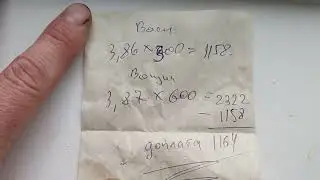 Воск
3,86 × 300 = 1158
Вощин
3,87 × 600 = 2322
- 1158
доплата 1164